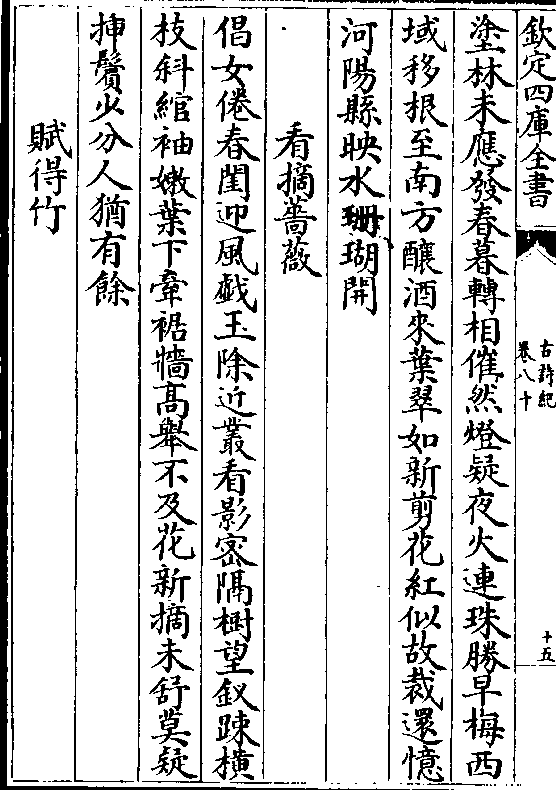 欽定四庫全書
古詩紀
卷八十
十五
塗林未應發春暮轉相催然燈疑夜火連珠勝早梅西
域移根至南方釀酒來葉翠如新剪花紅似故裁還憶
河陽縣映水珊瑚開
看摘薔薇
倡女倦春閨迎風戯玉除近叢看影密隔樹望釵踈横
枝斜綰袖嫩葉下牽裾墻髙舉不及花新摘未舒莫疑
挿鬢少分人猶有餘
賦得竹